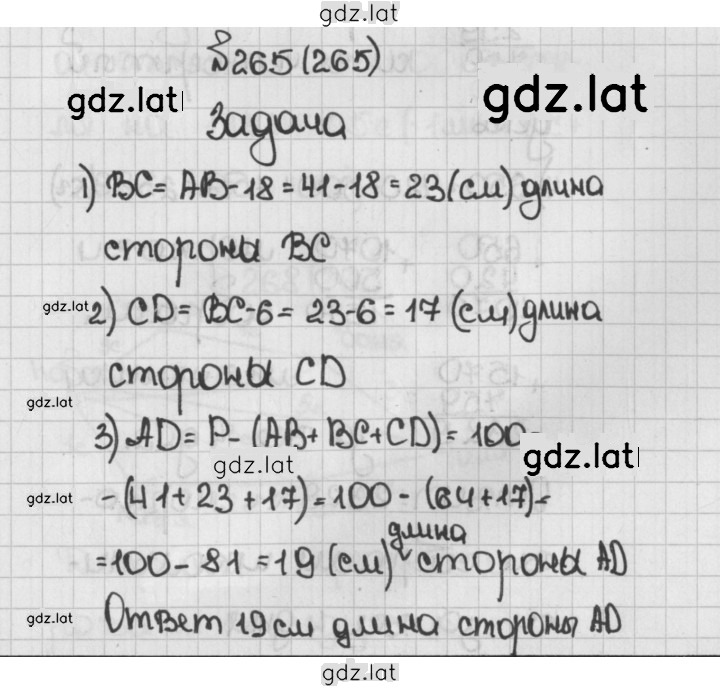 gdz.lat
№265(265)
gdz.lat
gdz.lat
Задача
1) BC= AB-18=41-18=23(см) длина
стороны BC
gdz.lat
2) CD= BC-6= 23-6=17 (см) длина
стороны CD
gdz.lat
3) AD= P-(AB+BC+CD)=100-
gdz.lat
gdz.lat
gdz.lat
-(41+23+17)=100-(64+17)=
длина
=100-81=19 (см) стороны AD
gdz.lat
Ответ 19см длина стороны AD
gdz.lat